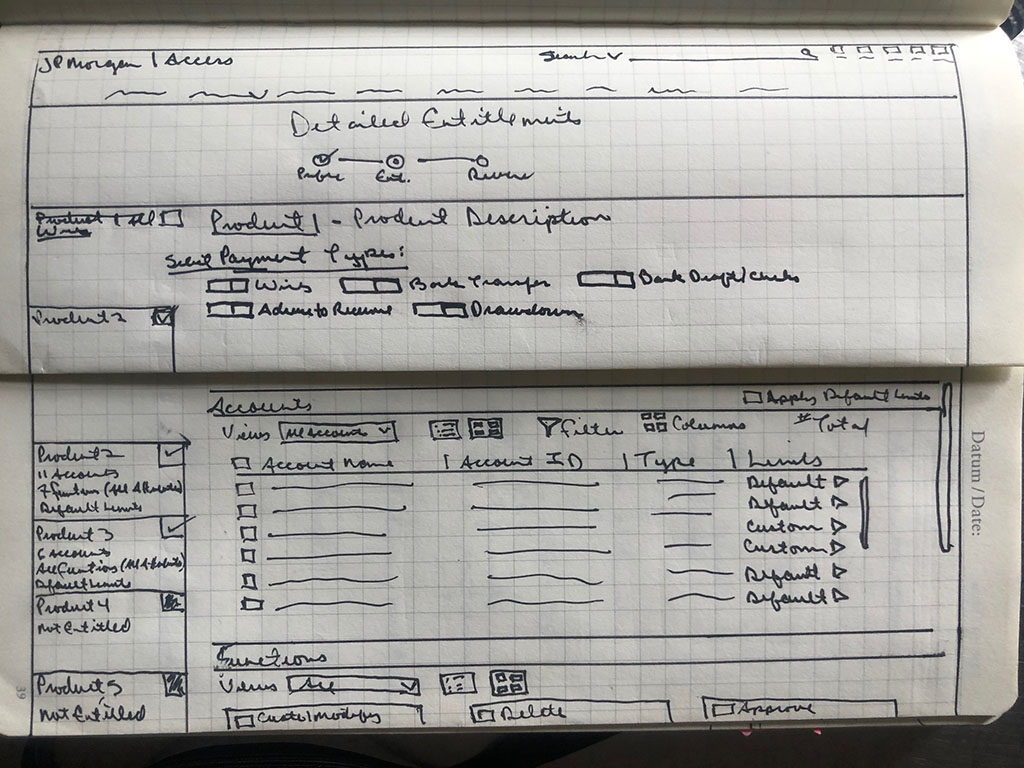 JP Morgan | Access
Search
Detailed Entitlements
Profile Ent. Review
Product 1 All
Wires
Product 1 - Product Description
Select Payment Types:
Wires Bank Transfer Bank Draft/Checks
Advise to Receive Drawdown
Product 2
Accounts Apply Default Limits
Views All Accounts Filter Columns # Total
Account Name | Account ID | Type | Limits
Default
Default
Custom
Custom
Default
Default
Product 2
11 Accounts
7 Functions (All Accounts)
Default Limits
Product 3
6 Accounts
All Functions (All Accounts)
Default Limits
Product 4
Not Entitled
Product 5
Not Entitled
Functions
Views All
Create/Modify Delete Approve
Datum / Date:
39